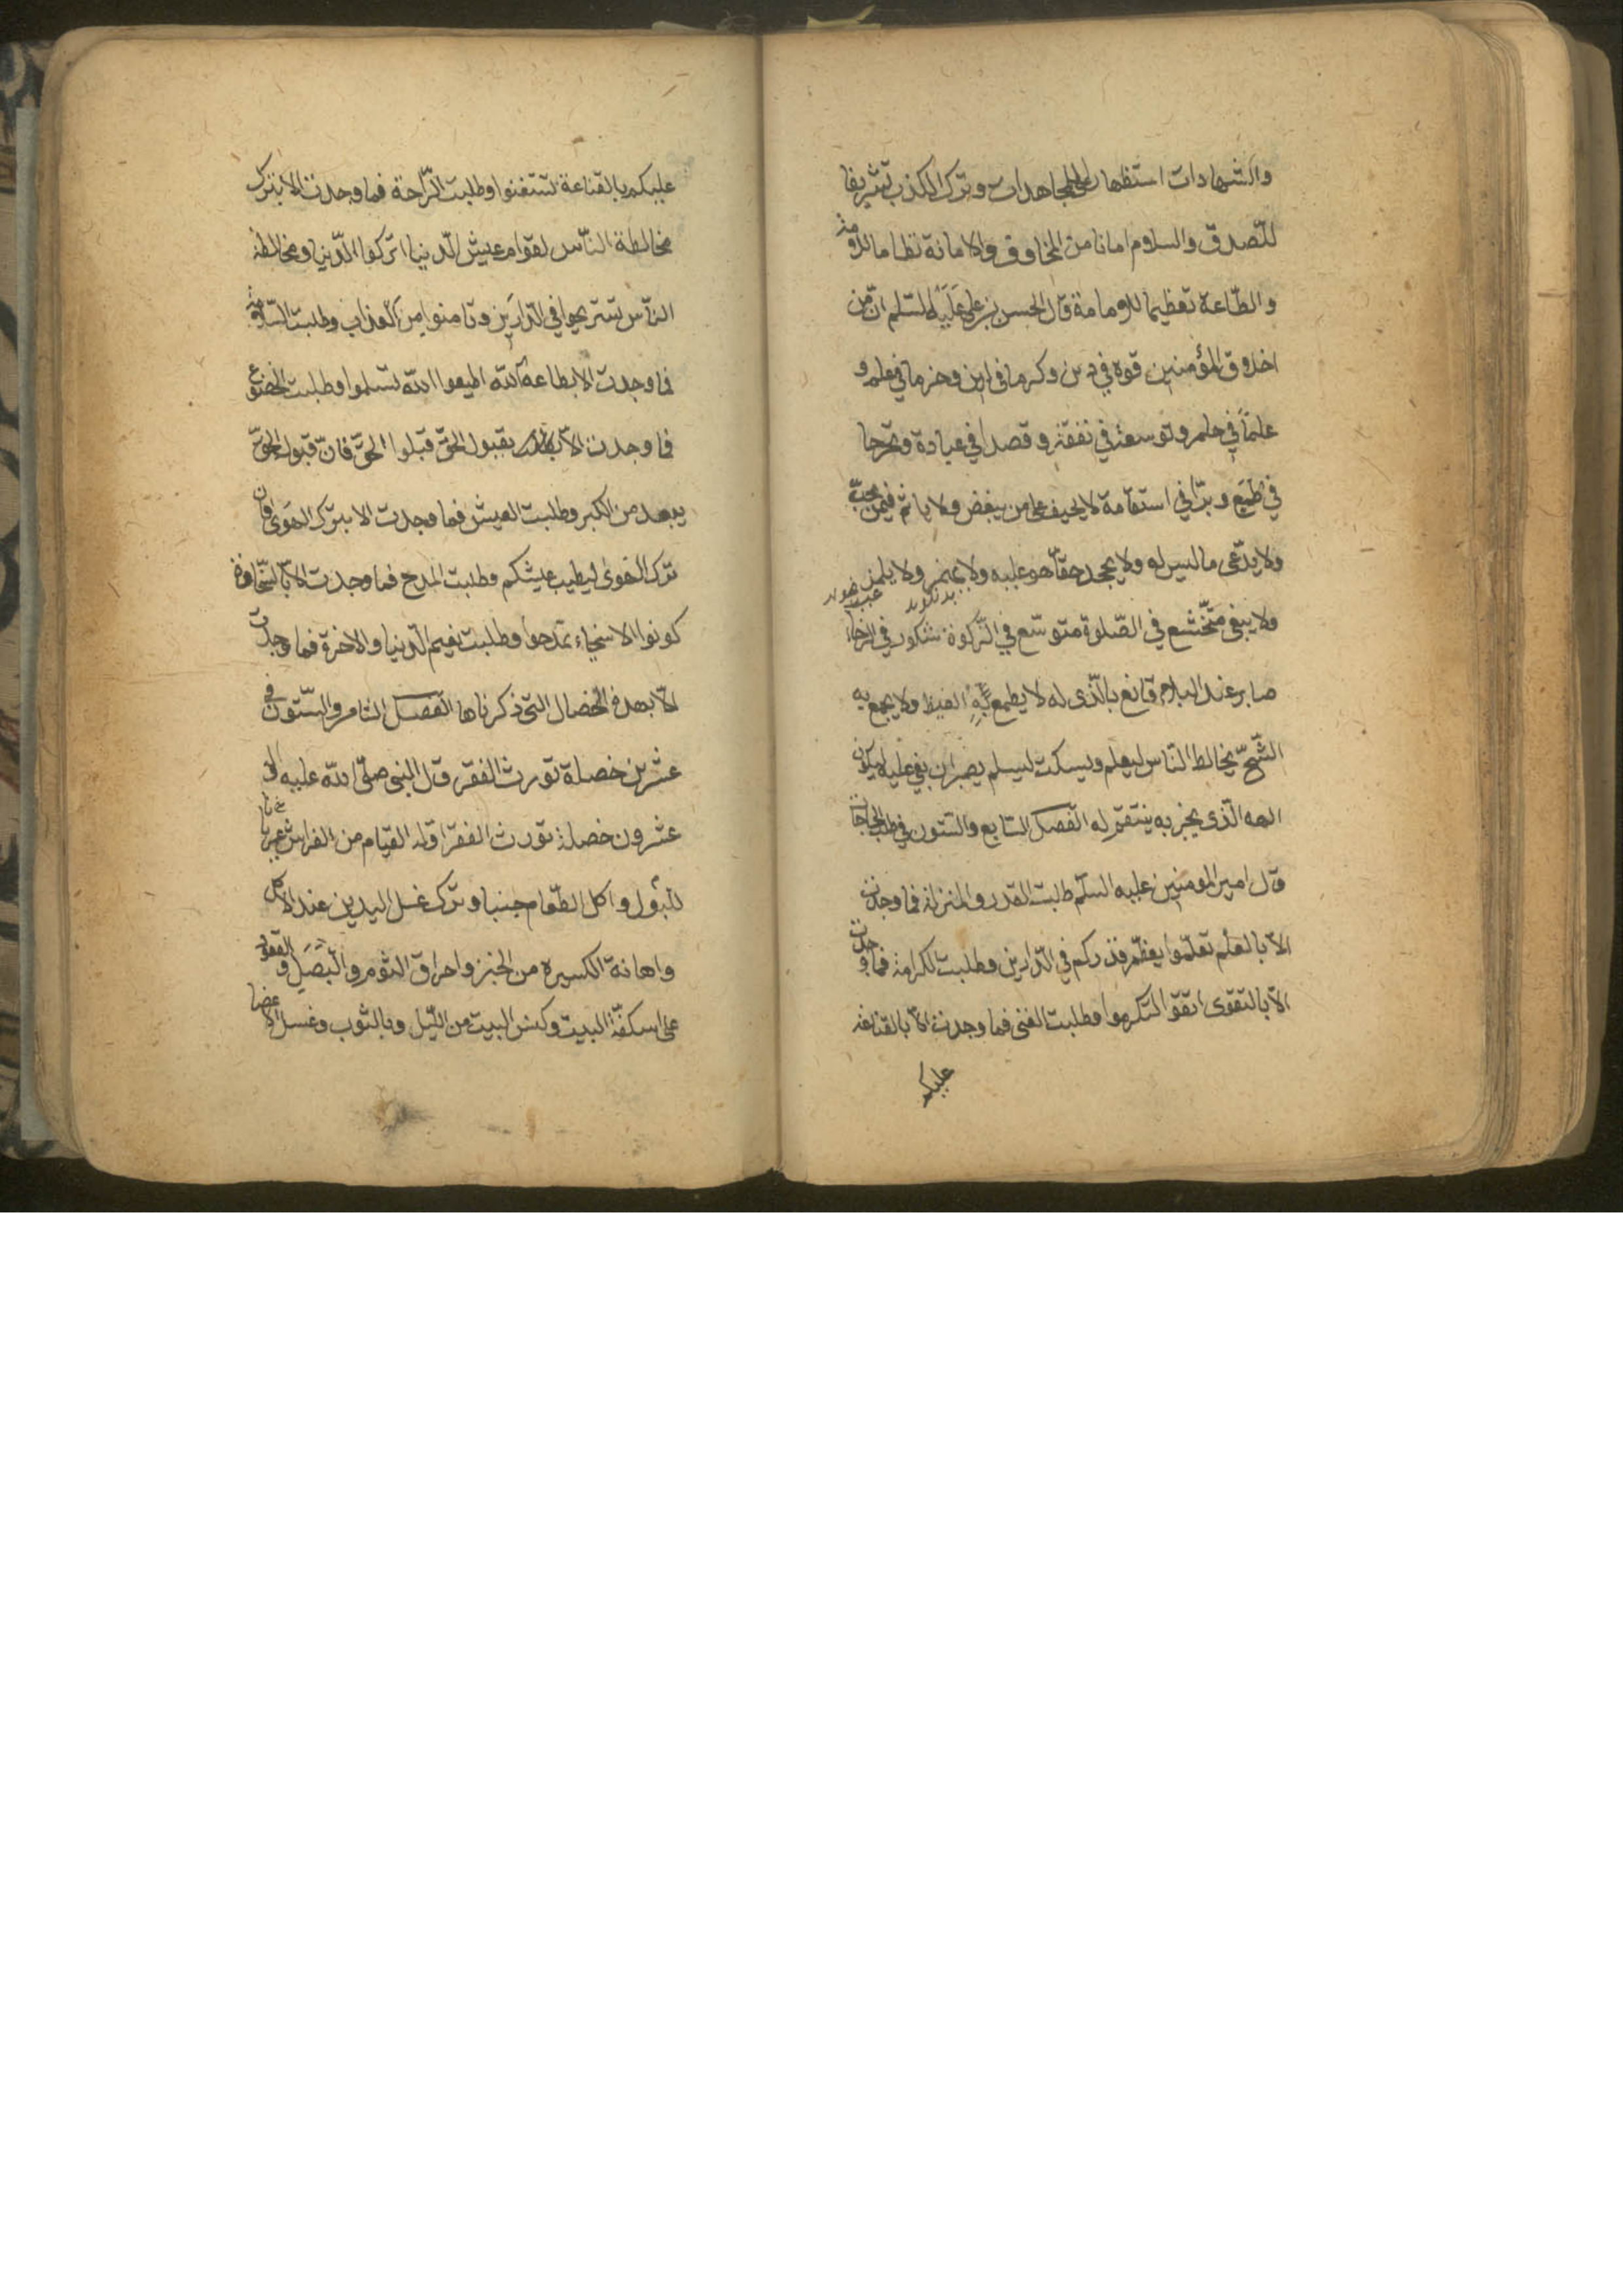 والشهادات استظهارا على المجاهدات وترك الكذب تشريفا
للصّدق والسلام امانا من المخاوف والامانة نظاما للامة
والطّاعة تعظيما للامامة قال الحسن بن على عَلَيْه السّلم انّ من
اخلاق المؤمنين قوة في دين وكرما في لين وحزما في علم و
علمًا في حلم وتوسعة في نفقة وقصدا في عبادة وتحرجا
في طمع وبرّا في استقامة لا يحيف على من يبغض ولا ياثم فيمن يحبّ
ولا يدّعى ما ليس له ولا يجحد حقّا هو عليه ولا يهمز ولا يلمز
ولا يبغى متخشع في الصّلوة متوسّع في الزّكوة شكور في الرخاء
صابر عند البلاء قانع بالّذى له لا يطمع به الغيظ ولا يجمع به
الشّحّ يخالط النّاس ليعلم ويسكت ليسلم يصبر ان بغى عليه ليكون
الهه الّذى يجزيه ينتقم له الفصل السّابع والستّون في طلب الحاجات
قال امير المومنين عليه السّلم طلبت القدر والمنزلة فما وجدت
الاّ بالعلم تعلّموا يعظم قدركم في الدّارين وطلبت الكرامة فما وجدت
الاّ بالتقوى اتقوا لتكرموا وطلبت الغنى فما وجدت الاّ بالقناعة
عليكم
عليكم بالقناعة تستغنوا وطلبت الرّاحة فما وجدت الا بترك
مخالطة النّاس لقوام عيش الدّنيا اتركوا الدّنيا ومخالطة
النّاس تستريحوا في الدّارَين وتامنوا من العذاب وطلبت السّلامة
فما وجدت الا بطاعة الله اطيعوا الله تسلموا وطلبت الخضوع
فما وجدت الاّ بقبول الحقّ قبلوا الحقّ فانّ قبول الحقّ
يبعد من الكبر وطلبت العيش فما وجدت الا بترك الهوى فان
ترك الهوى ليطيب عيشكم وطلبت المدح فما وجدت الاّ بالسّخاوة
كونوا الاسخياء تمدحوا وطلبت نعيم الدّنيا والاخرة فما وجدت
الاّ بهذه الخصال التى ذكرناها الفصل الثامن والستّون في
عشرين خصلة تورث الفقر قال النبى صلّى الله عليه واله
عشرون خصلة تورث الفقر اوّله القيام من الفراش عريانا
للبَول واكل الطّعام جنبا وترك غسل اليدين عند الاكل
واهانة الكسيرة من الخبز واحراق الثوم والبَصَل والقعود
على اسكفّة البيت وكنس البيت من اللّيل وبالثوب وغسل الاعضا